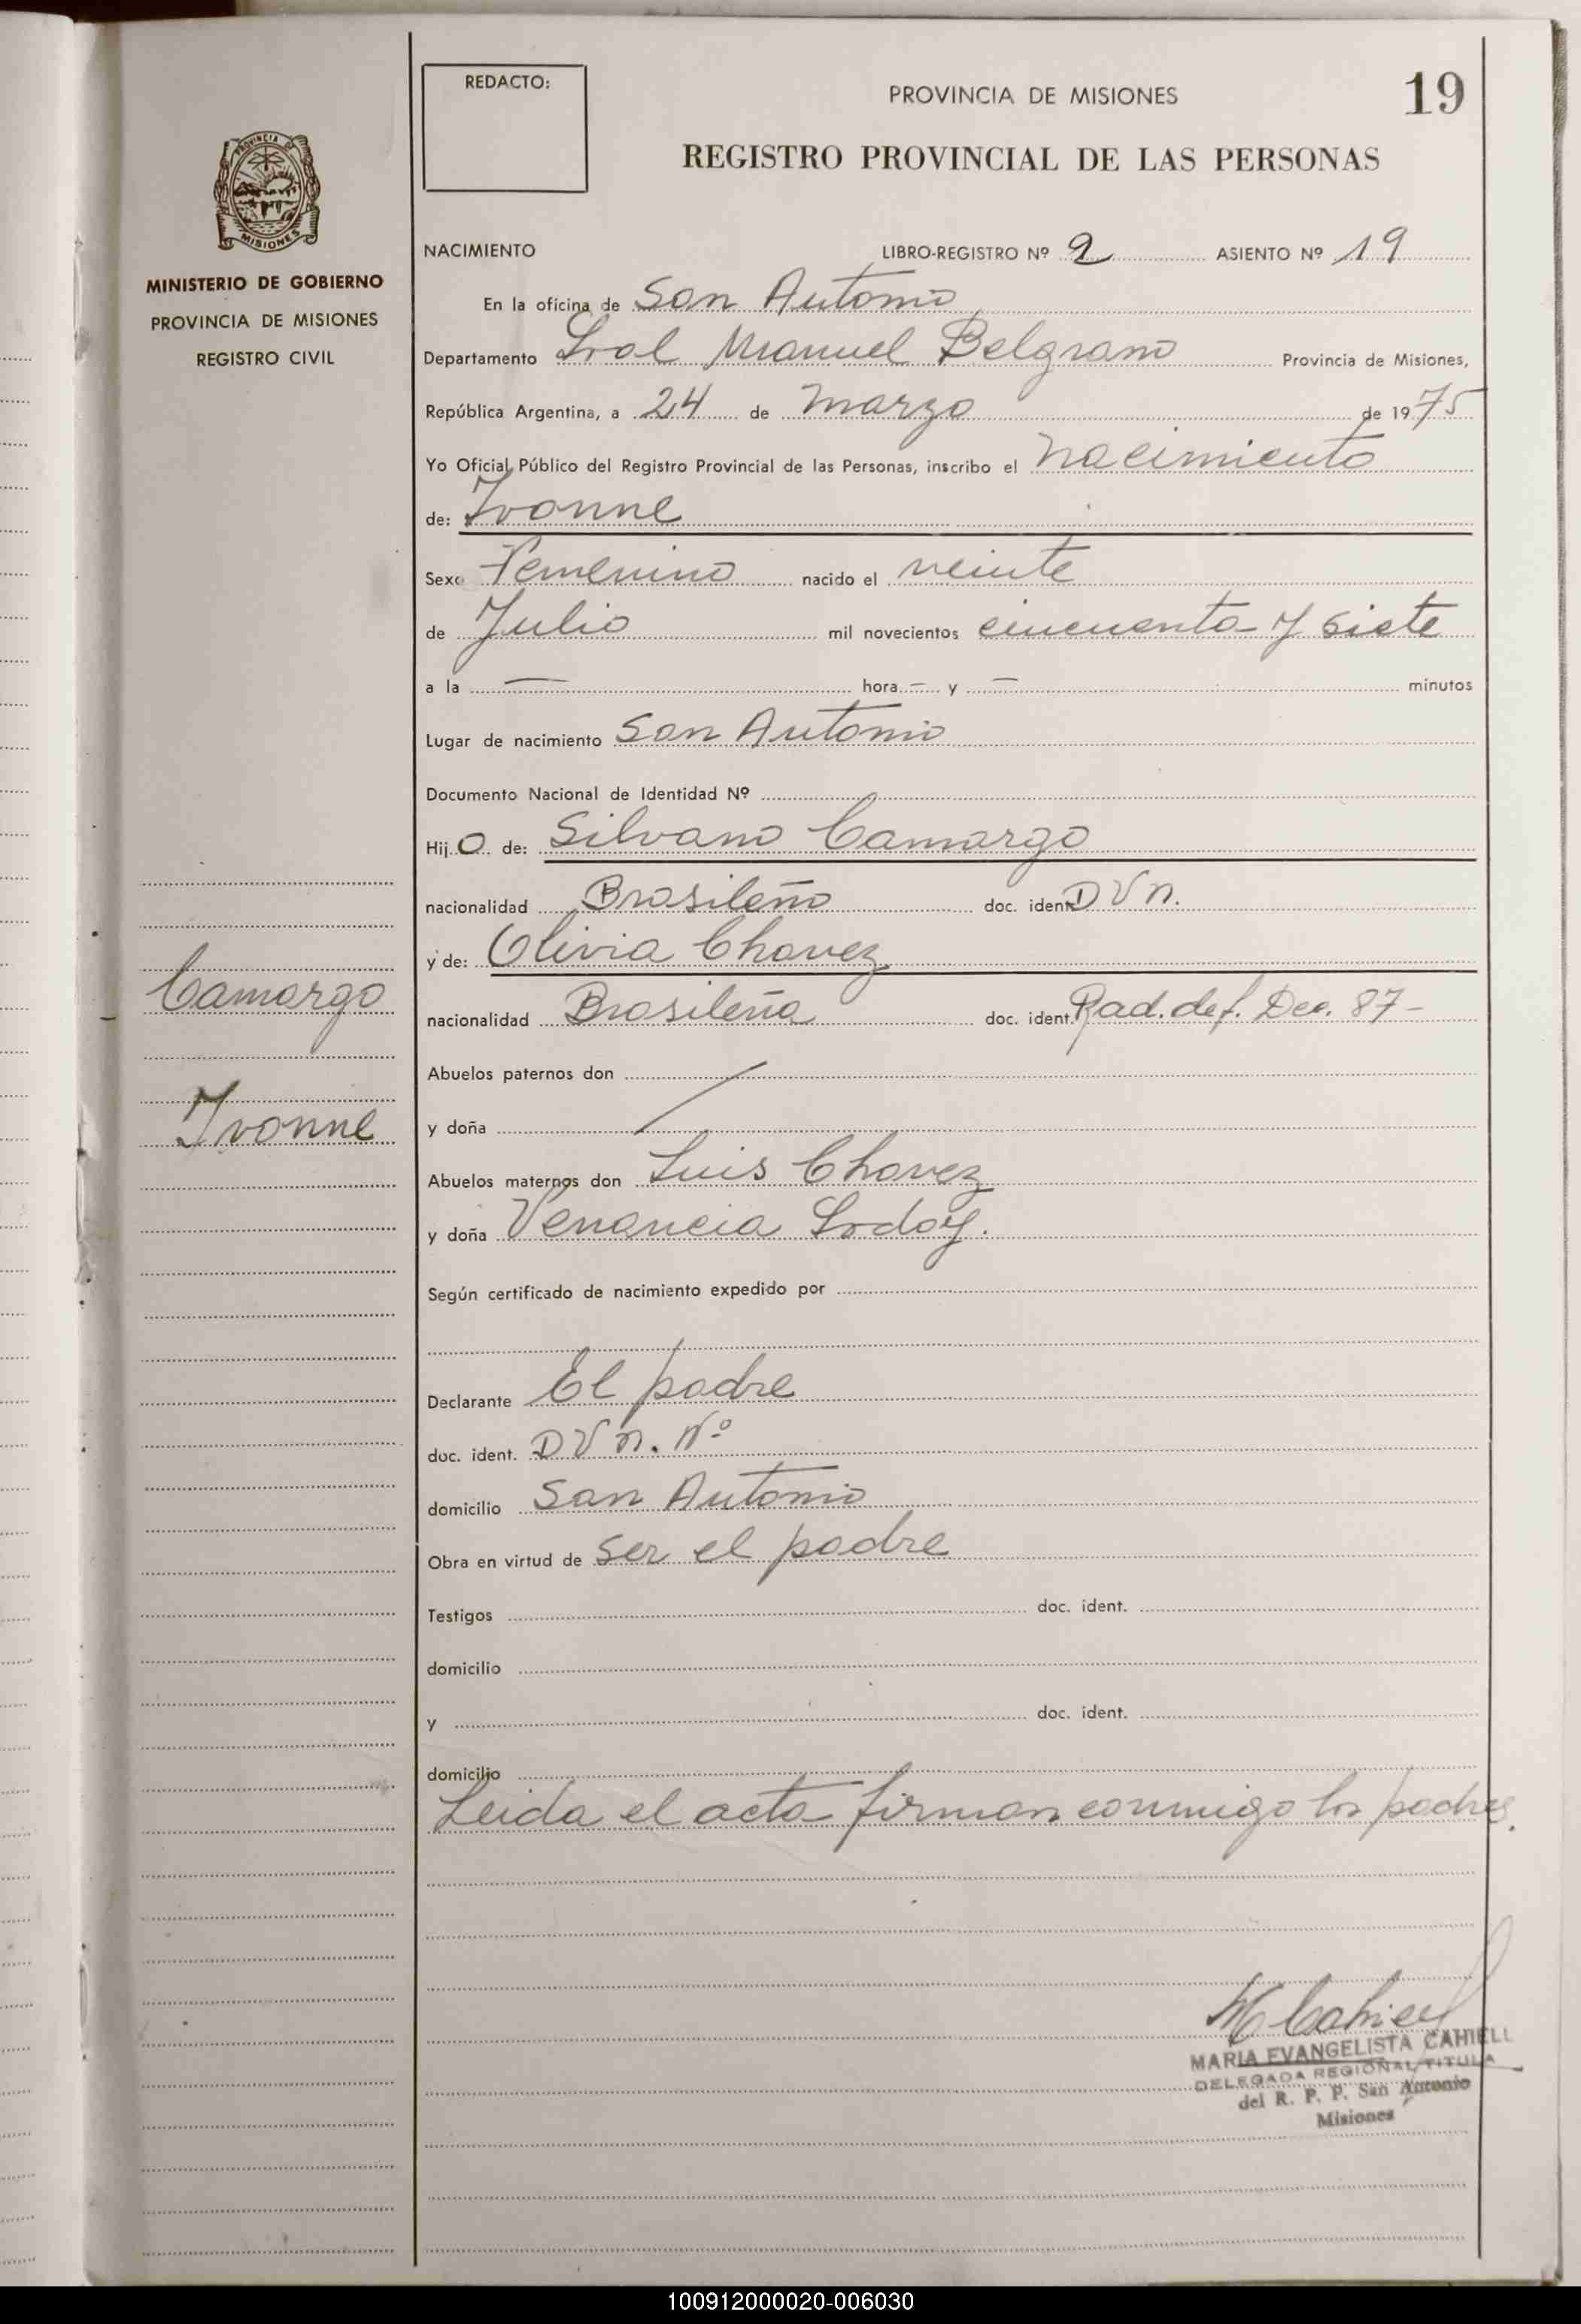 REDACTO:
PROVINCIA DE MISIONES
19
REGISTRO PROVINCIAL DE LAS PERSONAS
PROVINCIA DE
MISIONES
MINISTERIO DE GOBIERNO
PROVINCIA DE MISIONES
REGISTRO CIVIL
NACIMIENTO LIBRO-REGISTRO Nº 2 ASIENTO Nº 19
En la oficina de San Antonio
Departamento Gral Manuel Belgrano Provincia de Misiones,
República Argentina, a 24 de Marzo de 1975
Yo Oficial Público del Registro Provincial de las Personas, inscribo el Nacimiento
de: Ivonne
Sexo Femenino nacido el veinte
de Julio mil novecientos cincuenta y siete
a la — hora — y — minutos
Lugar de nacimiento San Antonio
Documento Nacional de Identidad Nº
Hijo de: Silvano Camargo
nacionalidad Brasileño doc. ident D V N.
y de: Olivia Chavez
nacionalidad Brasileña doc. ident. Rad. def. Dec. 87-
Camargo
Ivonne
Abuelos paternos don
y doña
Abuelos maternos don Luis Chavez
y doña Venancia Godoy.
Según certificado de nacimiento expedido por
Declarante El padre
doc. ident. D V N. Nº
domicilio San Antonio
Obra en virtud de ser el padre
Testigos doc. ident.
domicilio
y doc. ident.
domicilio
Leida el acta firman conmigo los padres.
M Cahiell
MARIA EVANGELISTA CAHIELL
DELEGADA REGIONAL TITULA
del R. P. P. San Antonio
Misiones
100912000020-006030